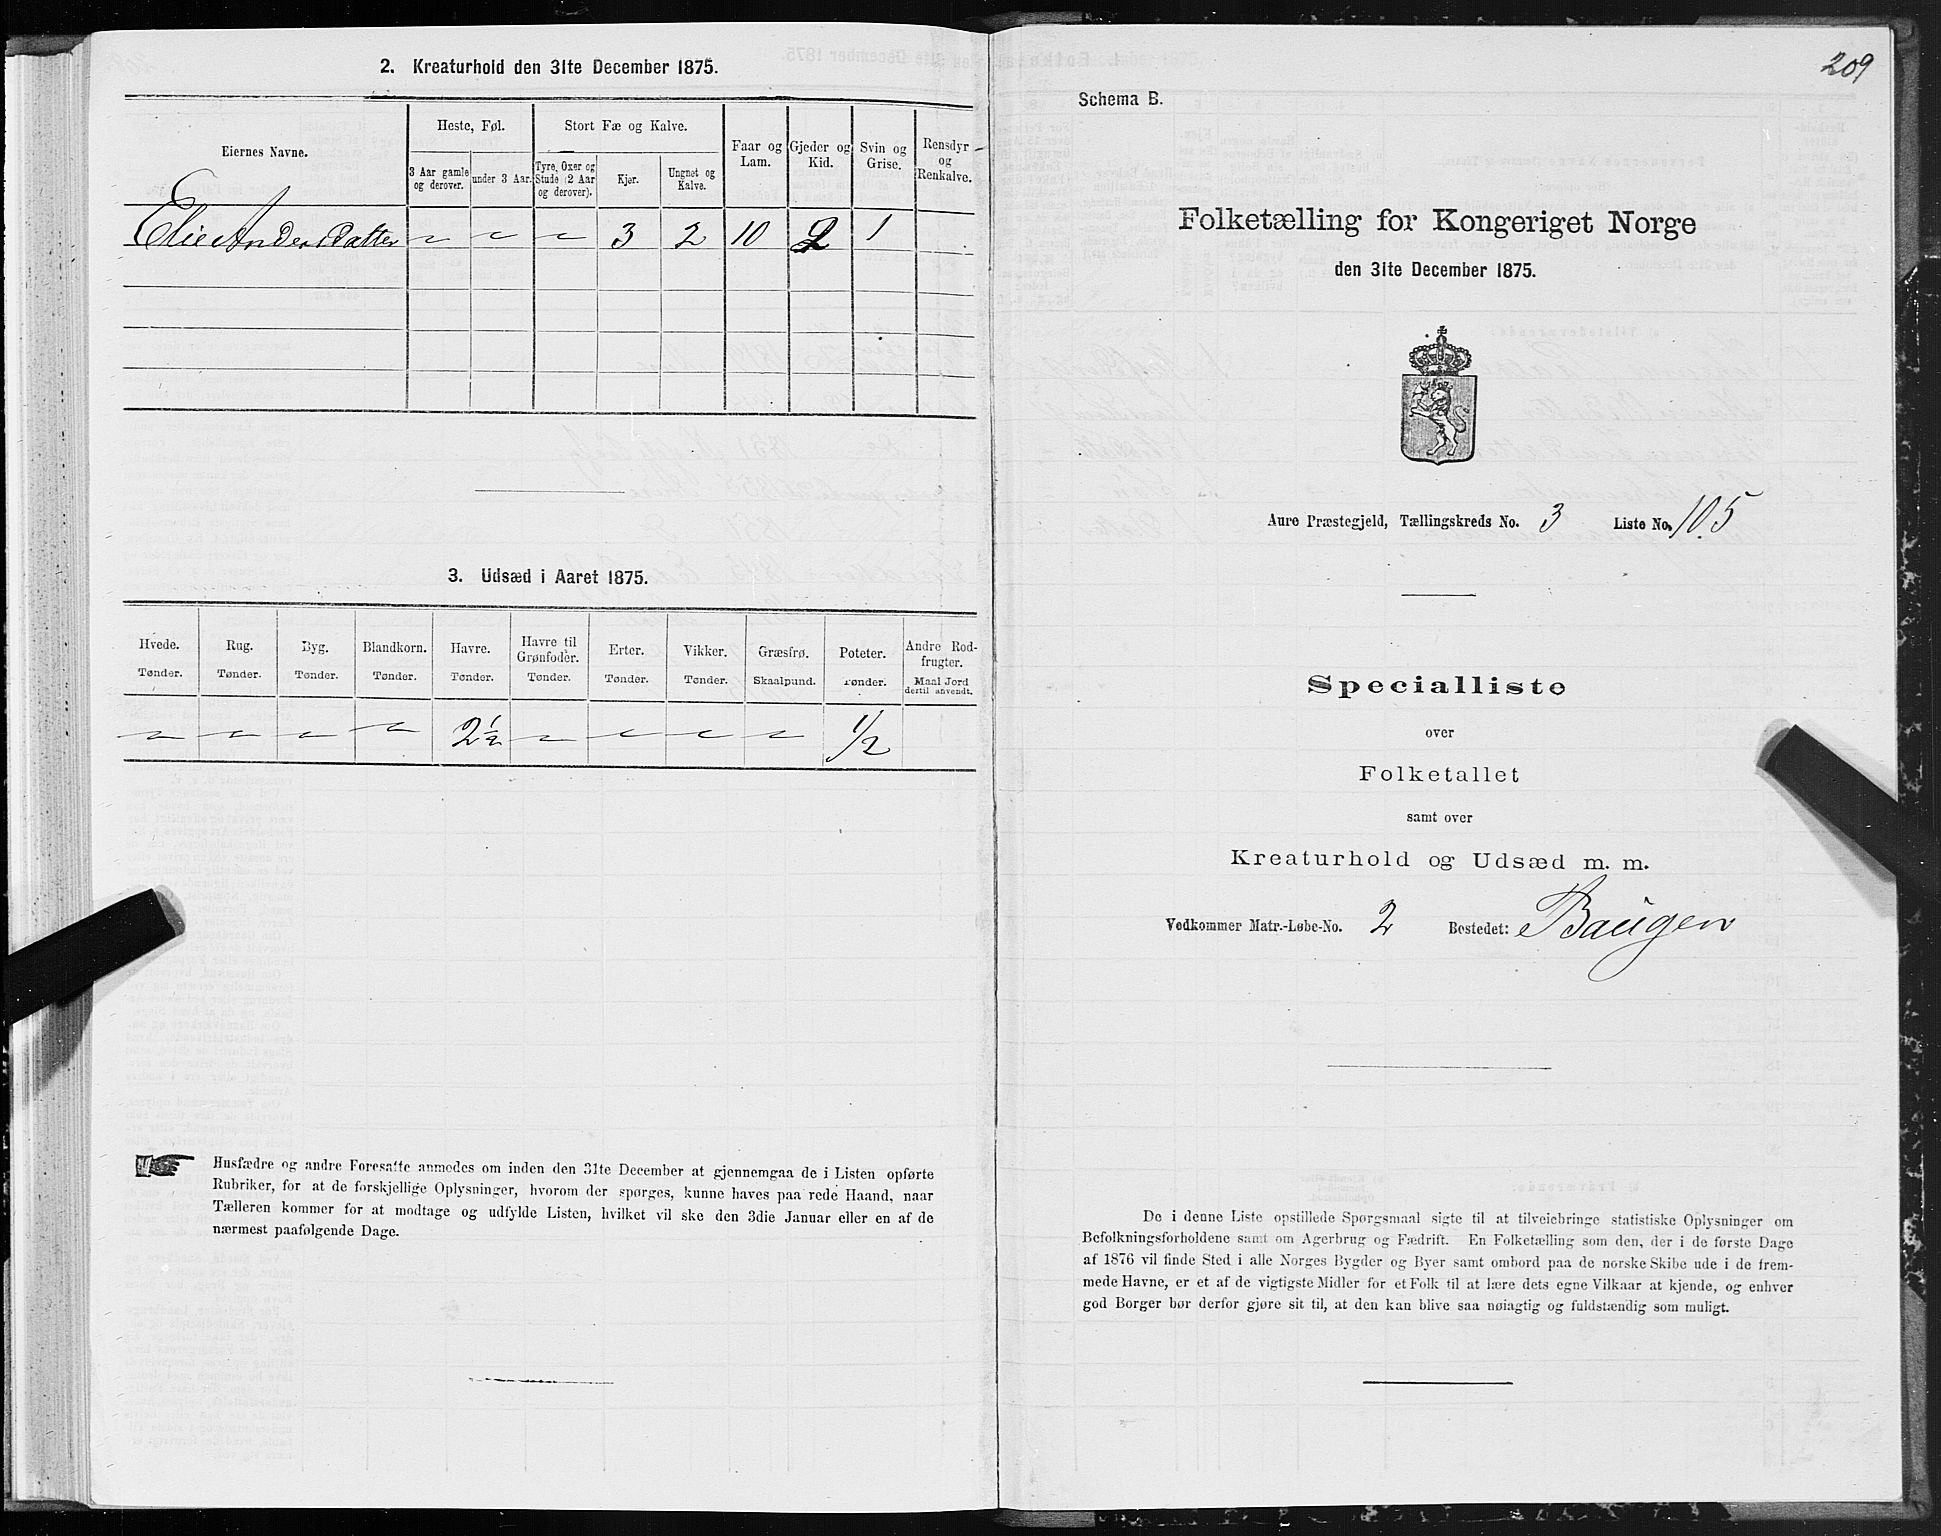 2. Kreaturhold den 31te December 1875.
Eiernes Navne.
Heste, Føl.
Stort Fæ og Kalve.
Faar og Lam.
Gjeder og Kid.
Svin og Grise.
Rensdyr og Renkalve.
3 Aar gamle og derover.
under 3 Aar.
Tyre, Oxer og Stude (2 Aar og derover).
Kjør.
Ungnøt og Kalve.
Elie Andersdatter " " " 3 2 10 2 1
3. Udsæd i Aaret 1875.
Hvede. Rug. Byg. Blandkorn. Havre. Havre til Grønfoder. Erter. Vikker. Græsfrø. Poteter. Andre Rodfrugter.
Tønder. Tønder. Tønder. Tønder. Tønder. Tønder. Tønder. Tønder. Skaalpund. Tønder. Maal Jord dertil anvendt.
" " " " 2 1/2 " " " " 1/2
Husfædre og andre Foresatte anmodes om inden den 31te December at gjennemgaa de i Listen opførte
Rubriker, for at de forskjellige Oplysninger, hvorom der spørges, kunne haves paa rede Haand, naar
Tælleren kommer for at modtage og udfylde Listen, hvilket vil ske den 3die Januar eller en af de
nærmest paafølgende Dage.
209
Schema B.
Folketælling for Kongeriget Norge
den 31te December 1875.
Aure Præstegjeld, Tællingskreds No. 3 Liste No. 105
Specialliste
over
Folketallet
samt over
Kreaturhold og Udsæd m. m.
Vedkommer Matr.-Løbe-No. 2 Bostedet: Baugen
De i denne Liste opstillede Spørgsmaal sigte til at tilveiebringe statistiske Oplysninger om
Befolkningsforholdene samt om Agerbrug og Fædrift. En Folketælling som den, der i de første Dage
af 1876 vil finde Sted i alle Norges Bygder og Byer samt ombord paa de norske Skibe ude i de frem-
mede Havne, er et af de vigtigste Midler for et Folk til at lære dets egne Vilkaar at kjende, og enhver
god Borger bør derfor gjøre sit til, at den kan blive saa nøiagtig og fuldstændig som muligt.